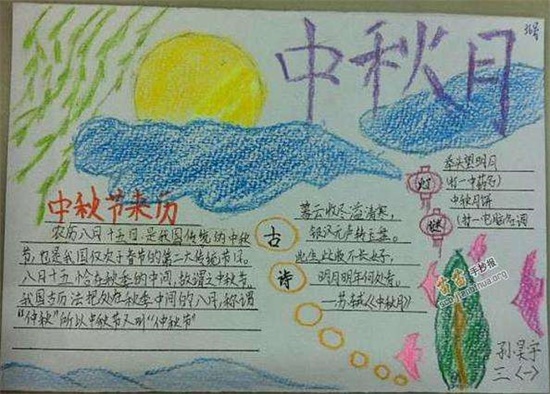 中秋月
中秋节来历
农历八月十五日,是我国传统的中秋
节,也是我国仅次于春节的第二大传统节日。
八月十五恰在秋季的中间,故谓之中秋节。
我国古历法把处在秋季中间的八月,称谓
“仲秋”所以中秋节又叫“仲秋节”
古诗
暮云收尽溢清寒,
银汉无声转玉盘。
此生此夜不长好,
明月明年何处看。
—苏轼《中秋月》
灯谜
举头望明月
(打一中药名)
中秋月饼
(打一电脑名词
手抄报
孙昊宇
三〈一〉